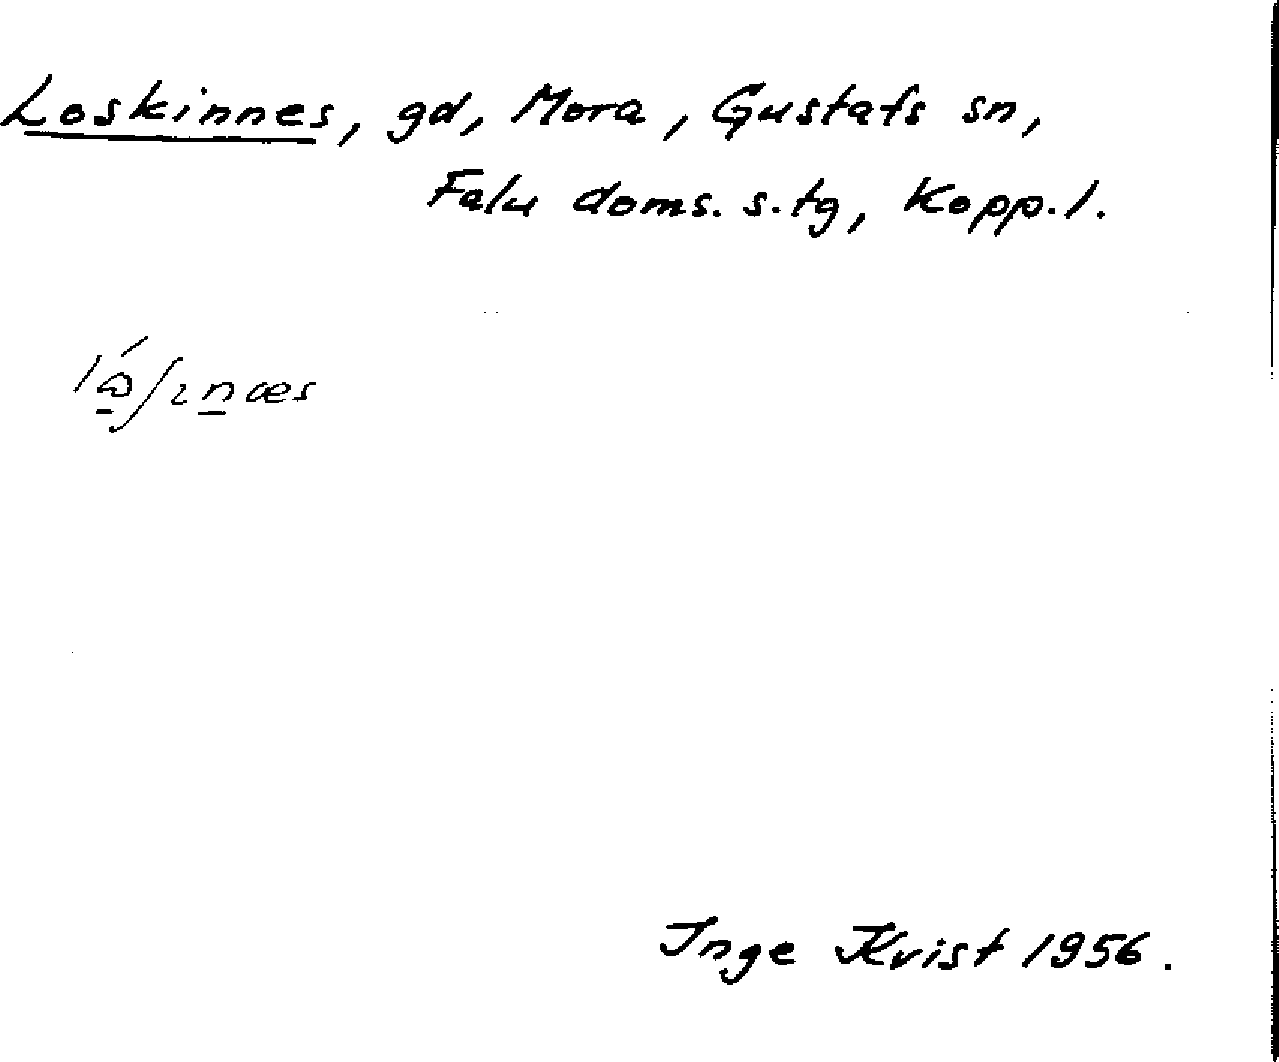 Loskinnes, gd, Mora, Gustafs sn,
Falu doms. s. tg, Kopp. l.
Inge Kvist 1956.